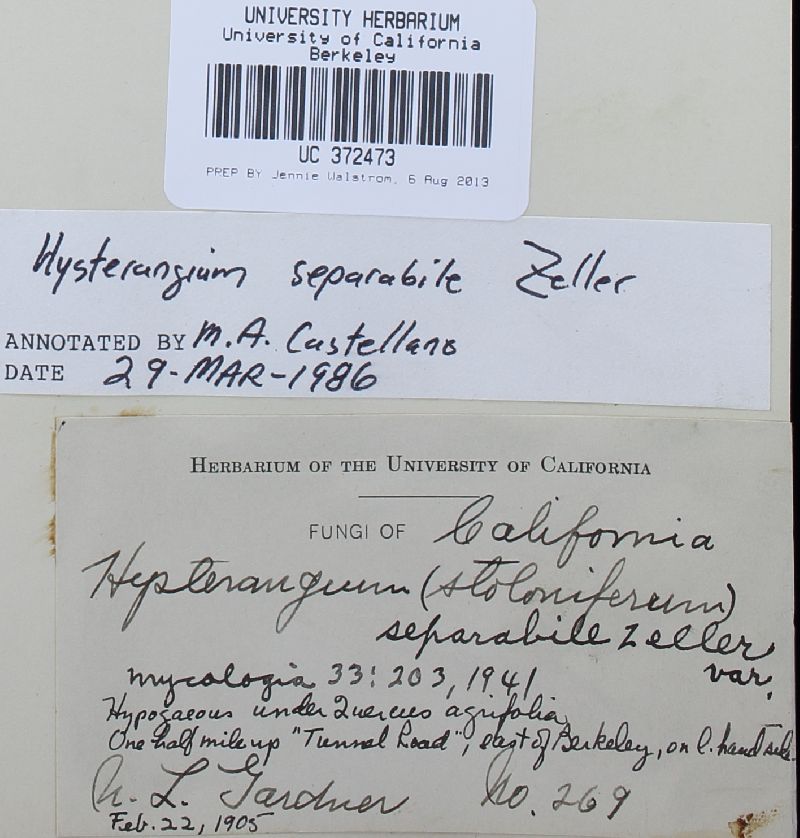 UNIVERSITY HERBARIUM
University of California
Berkeley
UC 372473
PREP BY Jennie Walstrom, 6 Aug 2013
Hysterangium separabile Zeller
ANNOTATED BY M.A. Castellano
DATE 29-MAR-1986
HERBARIUM OF THE UNIVERSITY OF CALIFORNIA
FUNGI OF California
Hysterangium (stoloniferum)
separabile Zeller
var.
Mycologia 33: 203, 1941
Hypogaeous under Quercus agrifolia
One half mile up "Tunnel Road", east of Berkeley, on l. hand side.
N. L. Gardner No. 269
Feb. 22, 1905